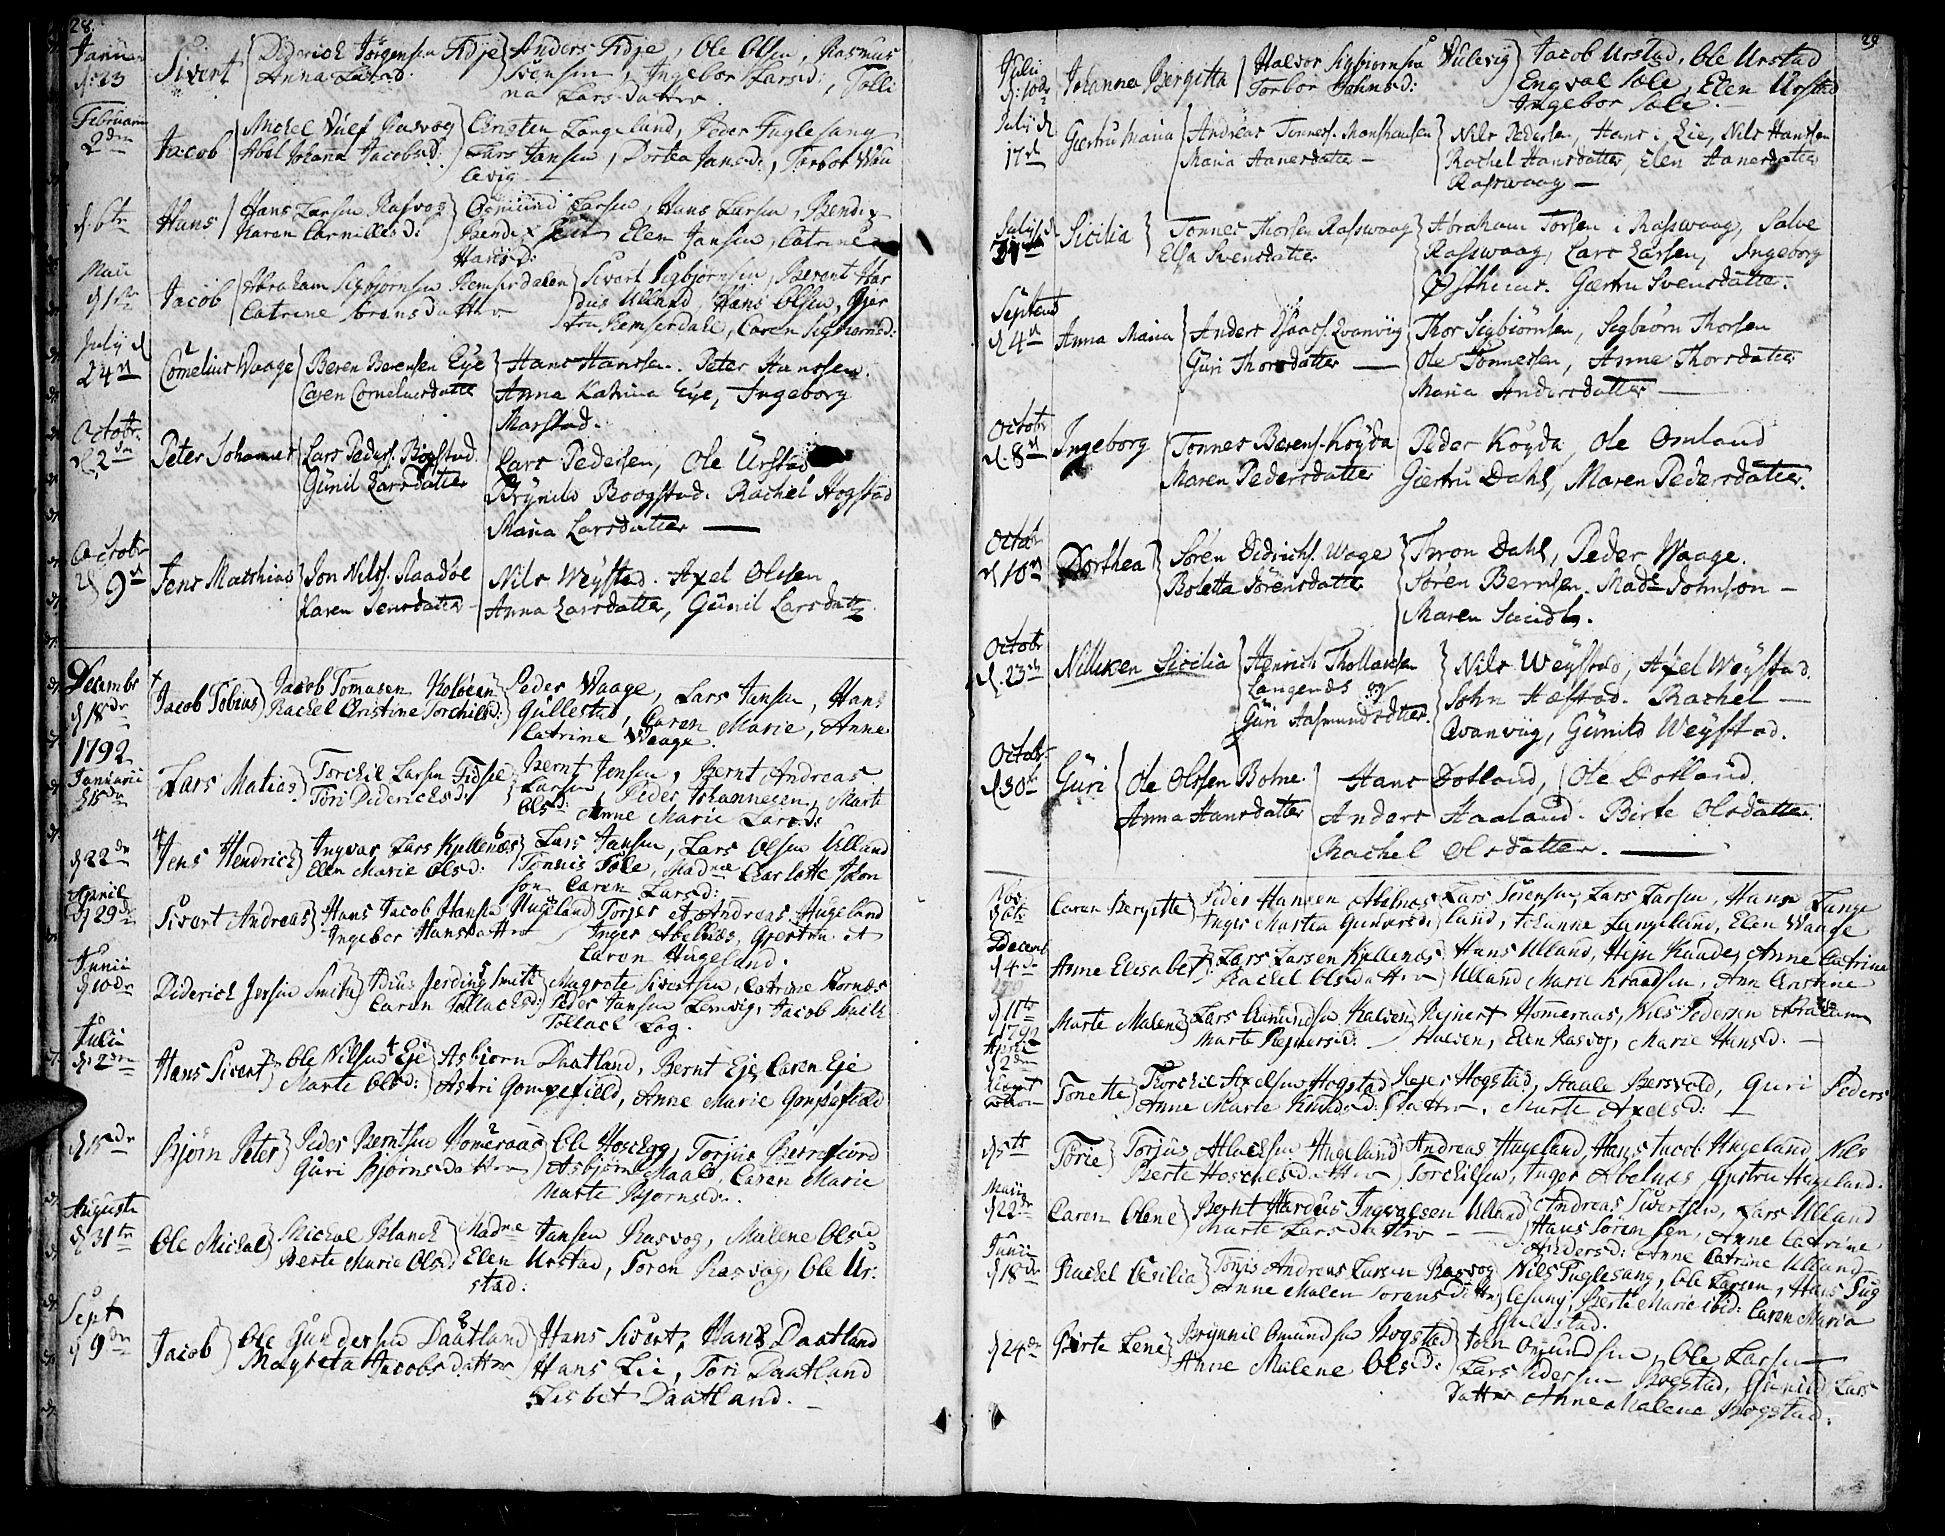 28.
Januari
d: 23
Sivert
Diderich Jørgensen Fidje
Anna Larsd:
Anders Fidje, Ole Olsen, Rasmus
Svensen, Ingebor Larsd:, Tolli
na Larsdatter
Februarii
2den
Jacob
Michel Wulf Rasvog
Abel Johanna Jacobsd:
Christen Langeland, Peder Fuglesang
Lars Jansen, Dortea Jansd:, Torbor Wul
levig
d 6te
Hans
Hans Larsen Rasvog
Karen Cornillesd:
Osmund Larsen, Hans Larsen, Bendix
Elen Jansen, Catrine
Hansd:
Maii
d 1ste
Jacob
Abraham Sigbjørnsen Remserdalen
Catrine Sørensdatter
Sivert Sigbjørnsen, Berent Har
dus Ulland, Hans Olsen, Gjer
tru Remserdahl, Caren Sigbiørnsd:
July d
24de
Cornelius Waage
Beren Berensen Eye
Caren Corneliusdatter
Hans Hansen. Peter Hanssen.
Anna Katrina Eye, Ingeborg
Marstad.
Octobr.
d. 2den
Peter Johannes
Lars Peders. Bogstad
Günil Larsdatter
Lars Pedersen, Ole Urstad
Brynild Boogstad. Rachel Hogstad
Maria Larsdatter —
Octobr
d 9de
Jens Matthias
Jon Nils. Raadøe
Karen Jensdatter
Nils Weystad. Axel Olssen
Anna Larsdatter, Günil Larsdatt
Decembr
d 18de
Jacob Tobias
Jacob Tomasen Koløen
Rachel Christine Torchilsd:
Peder Waage, Lars Jansen, Hans
Gullestad, Caren Marie, Anne
Catrine Waage
1792
Januarii
d 15de
Lars Matias
Torchil Larsen Fidje
Tori Diderichsd:
Bernt Jensen, Bernt Andreas
Larsen, Peder Johannesen, Marte
Olsd: Anne Marie Larsd:
d 22de
Jens Hendrich
Ingvar Lars Kjellenæs
Elen Marie Olsd:
Lars Jansen, Lars Olsen Ulland
Tønnis Føle, Madme Charlotte Jon
son Caren Larsd:
April
d 29de
Sivert Andreas
Hans Jacob Hansen Hugeland
Ingebor Hansdatter
Torjer et Andreas Hugeland
Inger Abelnæs, Gjertru et
Caren Hugeland.
Junii
d 10de
Diderich Jersin Smith
Caren Tollachsd:
Magrete Sivertsen, Catrine Hornæs
Peder Jansen Lemvig, Jacob Smith
Tollach Log.
Julii
d: 2den
Hans Sivert
Ole Nilsen Eje
Marte Olsd:
Asbiørn Daatland, Bernt Eje, Caren Eje
Astri Gompefield, Anne Marie Gompefield
d 15de
Bjørn Peter
Peder Berntsen Homeraas
Guri Bjørnsdatter
Ole Hoskog, Torjus Berrefiord
Asbjørn Maal, Caren Marie
Marte Bjørnsd:.
Augusti
d: 31te
Ole Michel
Michel Blanch
Berte Marie Olsd:
Madme Jansen Rasvog, Malene Olsd
Elen Urstad, Søren Rasvog, Ole Ur-
stad:
Sept
d 9de
Jacob
Ole Gundersen Daatland
Magreta Jacobsdatter
Hans Sivert, Hans Daatland
Hans Lie, Tori Daatland
Lisbet Daatland.
29
Julii
d: 10de
Johanna Bergitta
Halvor Sigbiørnsen Wulevig
Torbor Hansd:
Jacob Urstad, Ole Urstad
Engval Føle, Elen Urstad
Ingebor Føle. —
July d
17de
Giertru Maria
Andreas Tønness. Monshausen
Maria Hansdatter —
Nils Pedersen, Hans i Lie, Nils Hanssen
Rachel Hansdatter, Elen Hansdatter
Raswaag —
July d
31te
Sicilia
Tonnes Thorsen Raswaag
Elsa Svensdatter
Abraham Torsen i Raswaag, Salve
Raswaag, Lars Larsen, Ingeborg
Østhuus. Giertru Svensdatter.
Septemb
d 4de
Anna Maria
Anders Isaacs. Qvanviig
Guri Thorsdatter —
Thor Sigbiørnsen, Sigbiørn Thorsen
Ole Tønnessen, Anne Thorsdatter
Maria Andersdatter —
Octobr
d. 8de
Ingeborg
Tonnes Berens. Koyda
Maren Pedersdatter
Peder Koyda, Ole Omland
Giertru Dahl, Maren Pedersdatter.
Octobr
d 10de
Dorthea
Søren Didrichs. Wage
Boletta Sørensdatter
Thron Dahl, Peder Waage.
Søren Bernsen. Made Johnson —
Maren
Octobr
d. 23de
Nilliken Sicilia
Henrich Thollaksen
Langenes og
Güri Aasmundsdatter.
Nils Weystad, Axel Weystad.
John Hæstad. Rachel —
Qvanviig, Günild Weystad.
Octobr
d 30te
Güri
Ole Olssen Bohne
Anna Hansdatter
Hans Dotland, Ole Dotland
Anders Haaland. Birte Olsdatter
Rachel Olsdatter. —
Nov.
d 6te
Caren Bergitte
Peder Hansen Abelnæs
Inger Martea Gundersd:
Lars Sørensen, Lars Larsen, Hans Lange
land, Johanne Langeland, Elen Waage
Decemb
d 4de
Anne Elisabet
Lars Larsen Kjellenæs
Rachel Olsdatter
Hans Ulland, Anne Catrine
Ulland Marie Knudsen, Ann Cristine
d 11te
Marte Malene
Lars Omundsen Kalven
Marte Reinertsd:
Reinert Homeraas, Nils Pedersen Abraham
Halsen, Elen Rasvog, Marie Hansd: —
Aprili
d 2den
Tonette
Thorchil Axelsen Hogstad
Anne Marte Knudsd:
Rejer Hogstad, Staale Bersvold, Guri Peders
datter, Marte Axelsd:
d 5te
Torie
Torjus Atlachsen Hugeland
Berte Hoschelsdatter
Andreas Hugeland, Hans Jacob Hugeland, Nils
Torchilsen, Inger Abelnæs, Gjertru Hugeland.
Maii
d 22de
Caren Olene
Bernt Hardus Ingvalsen Ulland
Marte Larsdatter —
Andreas Sivertsen, Lars Ulland
Hans Sørensen, Anne Catrine
Andersd: Anne Catrine Ulland
Junii
d 18de
Rachel Cesilia
Tonis Andreas Larsen Rasvog
Anne Malen Sørensdatter
Nils Fuglesang, Ole Larsen, Hans Fug
lesang, Berte Marie ibid: Caren Maria
d 24de
Birte Lene
Brynnil Omundsen Bogstad
Anne Malene Olsd:
Joen Omundsen, Ole Larsen
Lars Pedersen Bogstad, Gunild Lars
datter Anne Malene Bogstad.